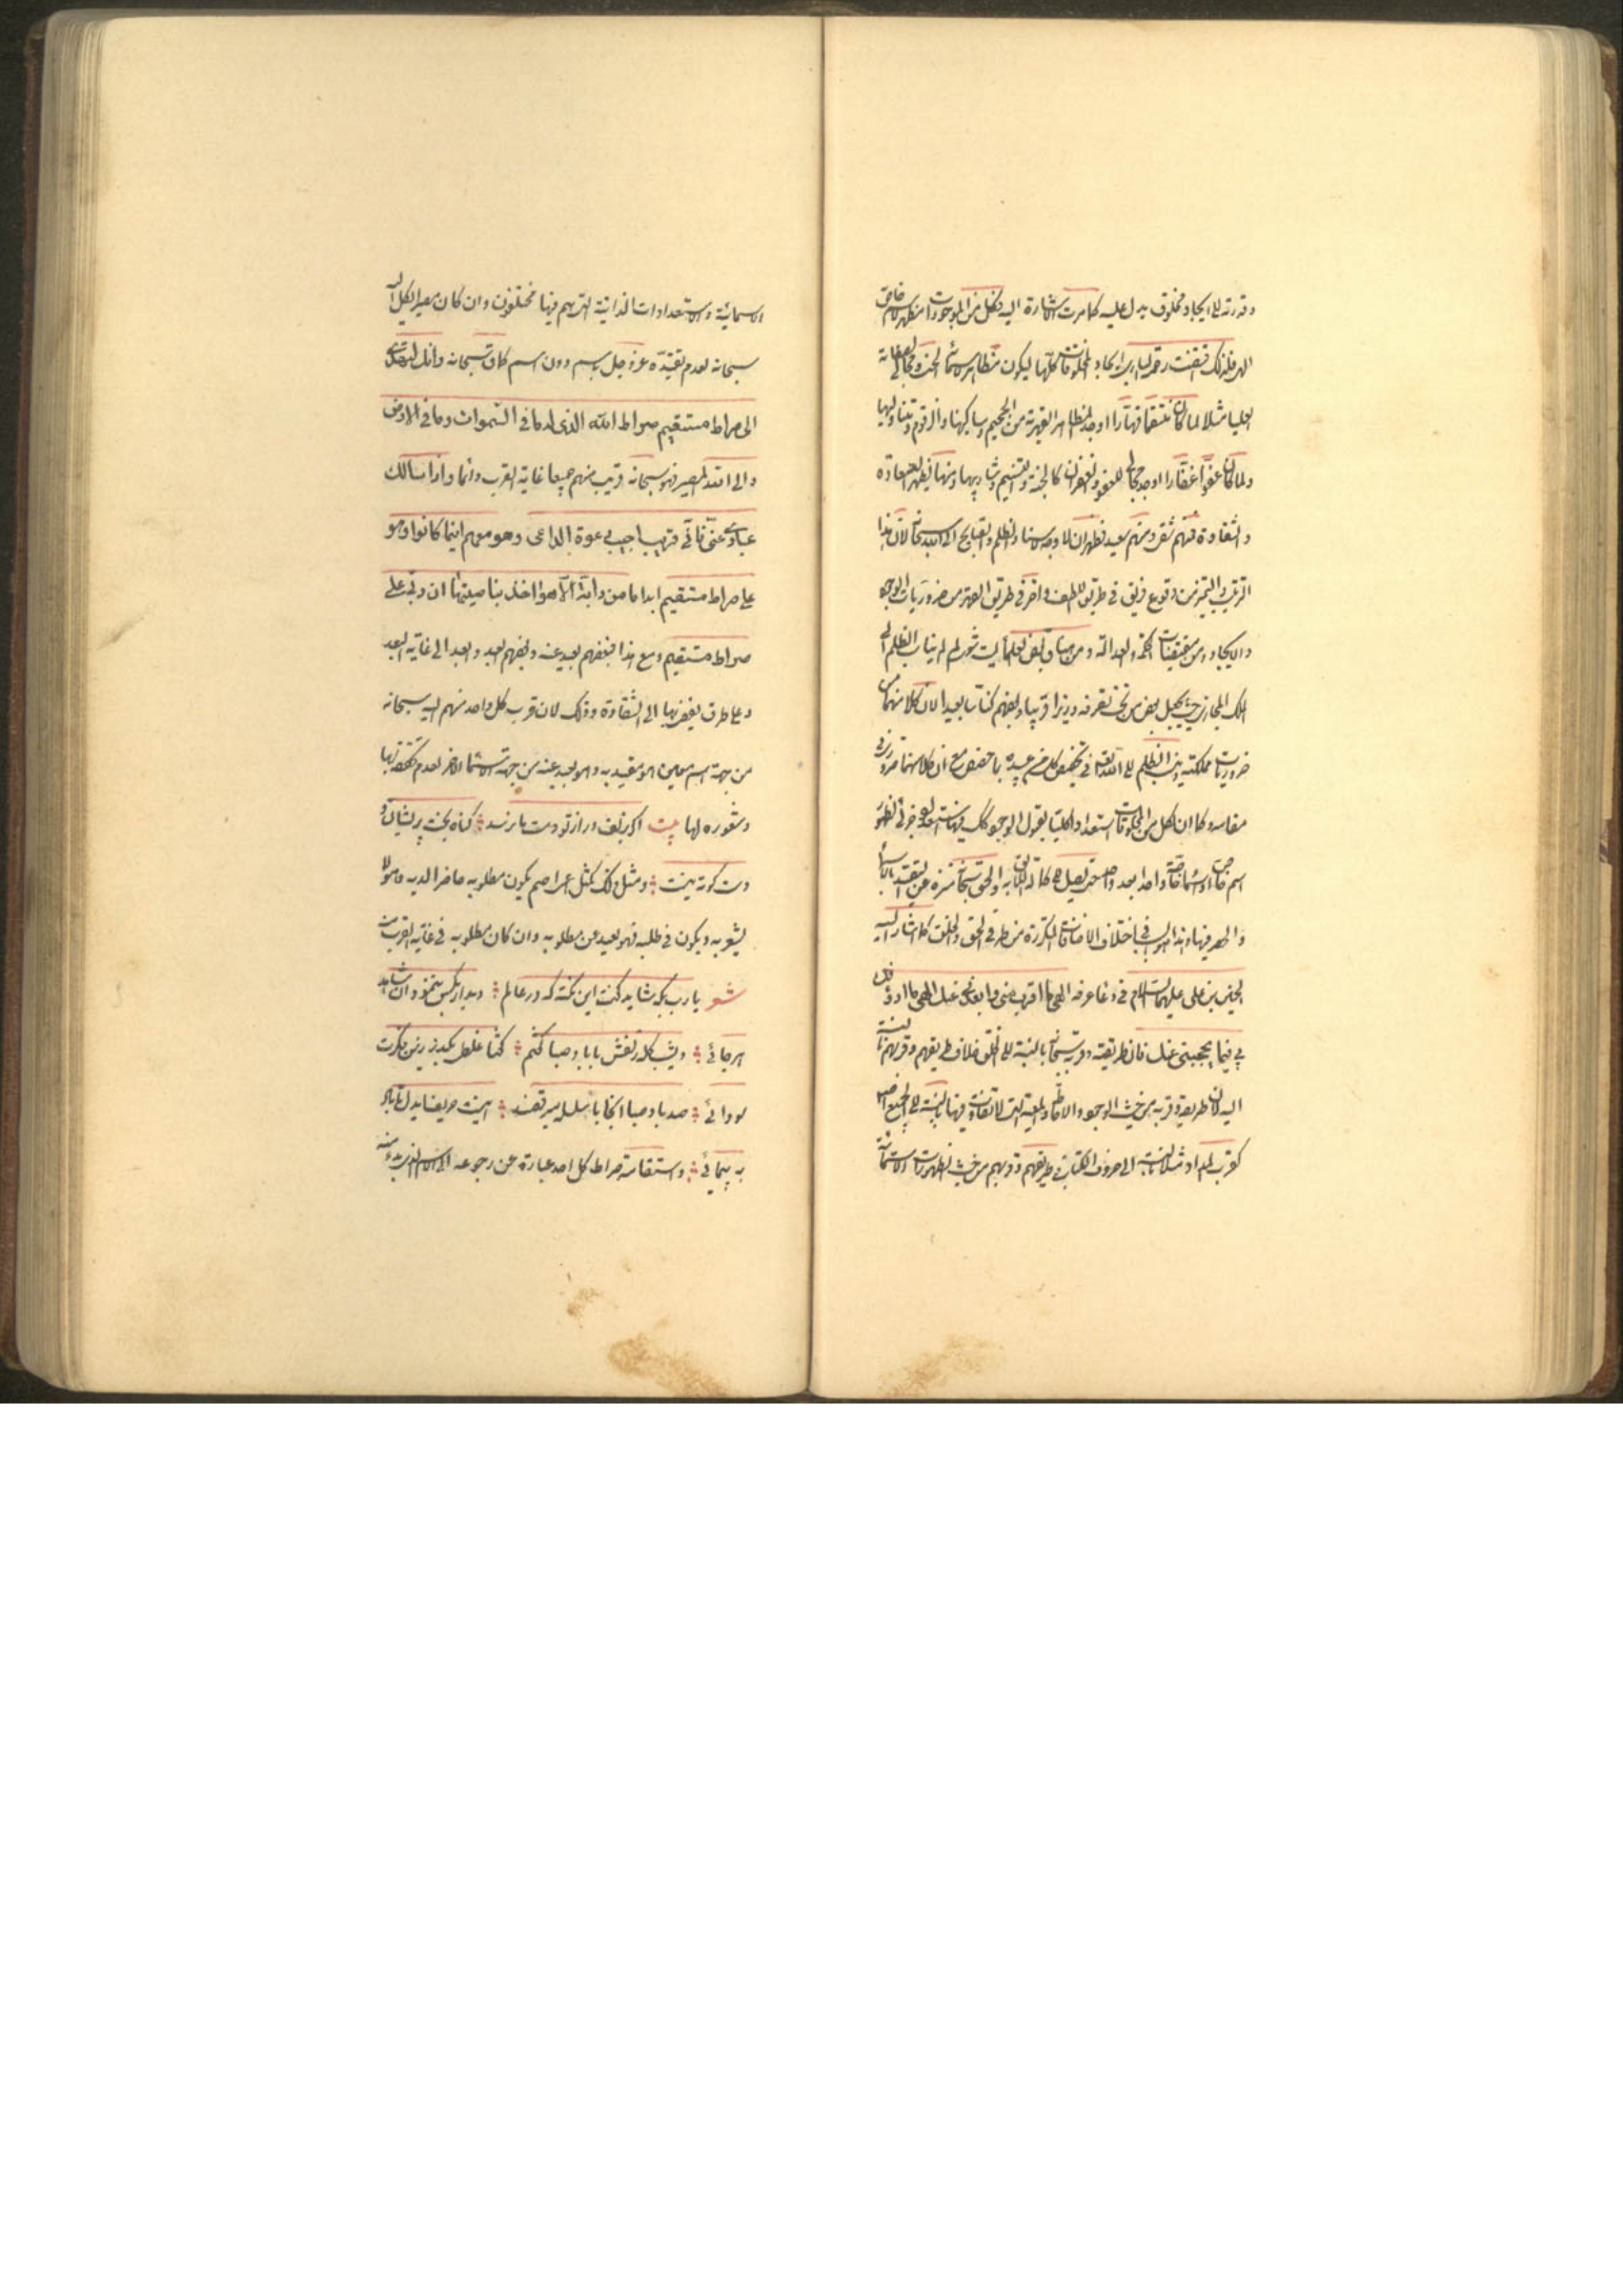 وقدرته على ايجاد مخلوق يدل عليه كما مرت الاشارة اليه فكل من الموجودات مظهر اسم خاص
الهى فلذلك اقتضت رحمة البارى ايجاد المخلوقات كلها ليكون مظاهر اسمائه الحسنى ومجالى صفاته
العليا مثلا لما كان منتقما قهارا اوجد المظاهر القهرية من الجحيم وساكنيها والزقوم ومتناوليها
ولما كان عفوا غفارا اوجد مجالى للعفو والغفران كالجنة والتسنيم وشاربيها ومنها يظهر السعادة
والشقاوة فمنهم شقى ومنهم سعيد فظهر ان لا وجه لاسناد الظلم والقبايح الى الله سبحانه لان هذا
الترتيب والتميز من وقوع فريق فى طريق اللطف واخر فى طريق القهر من ضروريات الوجود
والايجاد ومن مقتضيات الحكمة والعدالة ومن هنا قال بعض العلماء ليت شعرى لم لا ينسب الظلم الى
الملك المجازى حيث يجعل بعض من تحت تصرفه وزيرا قريبا وبعضهم كناسا بعيدا لان كلا منهما من
ضروريات مملكته وينسب الظلم الى الله تعالى فى تخصيص كل من عبيده بما خصص مع ان كلا منهما ضرورى فى
مقامه وكما ان لكل من المخلوقات استعدادا كليا لقبول الوجود كذلك فيها استعداد جزئى لظهور
اسم خاص او اسماء خاصة واحدا بعد واحد حتى يصل الى كماله اللايق به والحق سبحانه منزه عن التقيد بالاسماء
والحصر فيها وهذا هو السبب فى اختلاف الاضافات المتكررة من طرفى الحق والخلق كما اشار اليه
الحسين بن على عليهما السلام فى دعاء عرفة الهى ما اقربك منى وابعدنى عنك الهى ما ارأفك
بى فما يحجبنى عنك فان طريقته وقربه سبحانه بالنسبة الى الخلق خلاف طريقهم وقربهم بالنسبة
اليه لان طريقه وقربه من حيث الوجود والاحاطة والمعية التى لا تفاوت فيها بالنسبة الى الجميع اصلا
كقرب المداد مثلا بالنسبة الى حروف الكتاب فى طريقهم وقربهم من حيث الظهورات الاسمائية
الاسمائية والاستعدادات الذاتية التى هم فيها مختلفون وان كان مصير الكل اليه
سبحانه لعدم تقيده عز وجل باسم دون اسم كما قال سبحانه وانك لتهدى
الى صراط مستقيم صراط الله الذى له ما فى السموات وما فى الارض
والى الله المصير فهو سبحانه قريب منهم جميعا غاية القرب دائما واذا سألك
عبادى عنى فانى قريب اجيب دعوة الداعى وهو معهم اينما كانوا وهو
على صراط مستقيم ابدا ما من دابة الا هو اخذ بناصيتها ان ربى على
صراط مستقيم ومع هذا فبعضهم بعيد عنه وبعضهم ابعد وابعد الى غاية البعد
وعلى طرق يفضى بها الى الشقاوة وذلك لان قرب كل واحد منهم اليه سبحانه
من جهة اسم معين هو مقيد به وهو بعيد عنه من جهة الاسماء الاخر لعدم تحققه بها
وشعوره لها بيت اگر بزلف دراز تو دست ما نرسد گناه بخت پريشان و
دست كوته ماست ومثل ذلك كمثل اعمى اصم يكون مطلوبه حاضرا لديه وهو لا
يشعر به ويكون فى طلبه فهو بعيد عن مطلوبه وان كان مطلوبه فى غاية القرب منه
شعر يا رب بكه شايد گفت اين نكته كه در عالم رخسار بكس ننمود آن شاهد
هرجائى ديشب گله زلفش با باد صبا گفتم گفتا غلطى بگذر زين فكرت
سودائى صد باد صبا اينجا با سلسله ميرقصند اينست حريف ايدل تا باد
نه پيمائى واستقامة صراط كل احد عبارة عن رجوعه الى الاسم الذى بدء منه